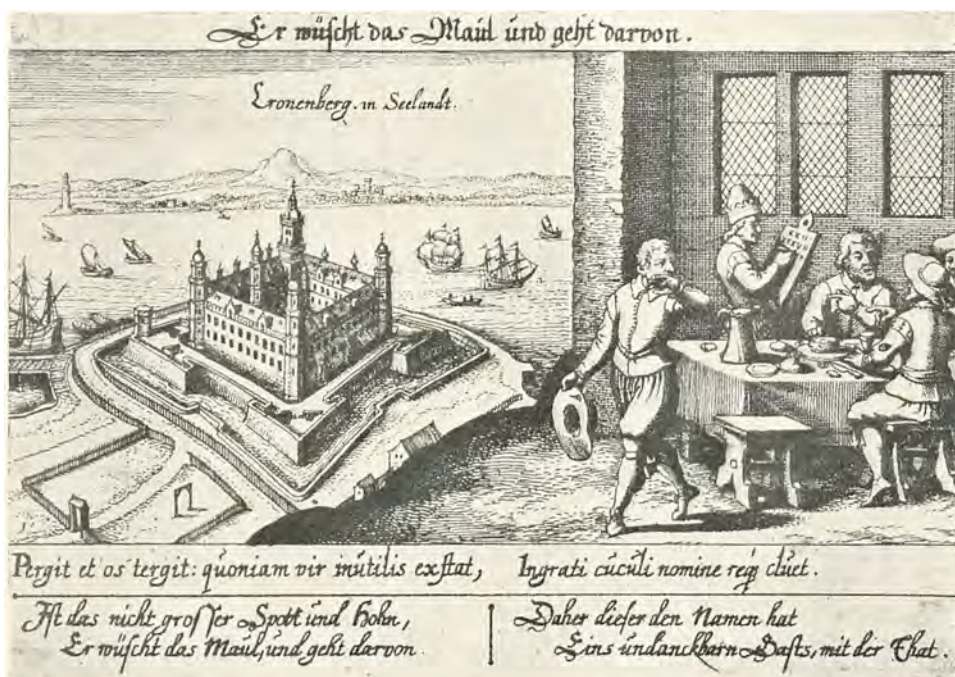 Er wüscht das Maül ünd geht darvon.
Cronenberg. in Seelandt.
Pergit et os tergit: quoniam vir inütilis exstat, Ingrati cücüli nomine reqꝫ clüet.
Ist das nicht grosser Spott ünd Hohn,
Er wüscht das Maül, ünd geht darvon.
Daher dieser den Namen hat
Eins ündanckbarn Gasts, mit der That.